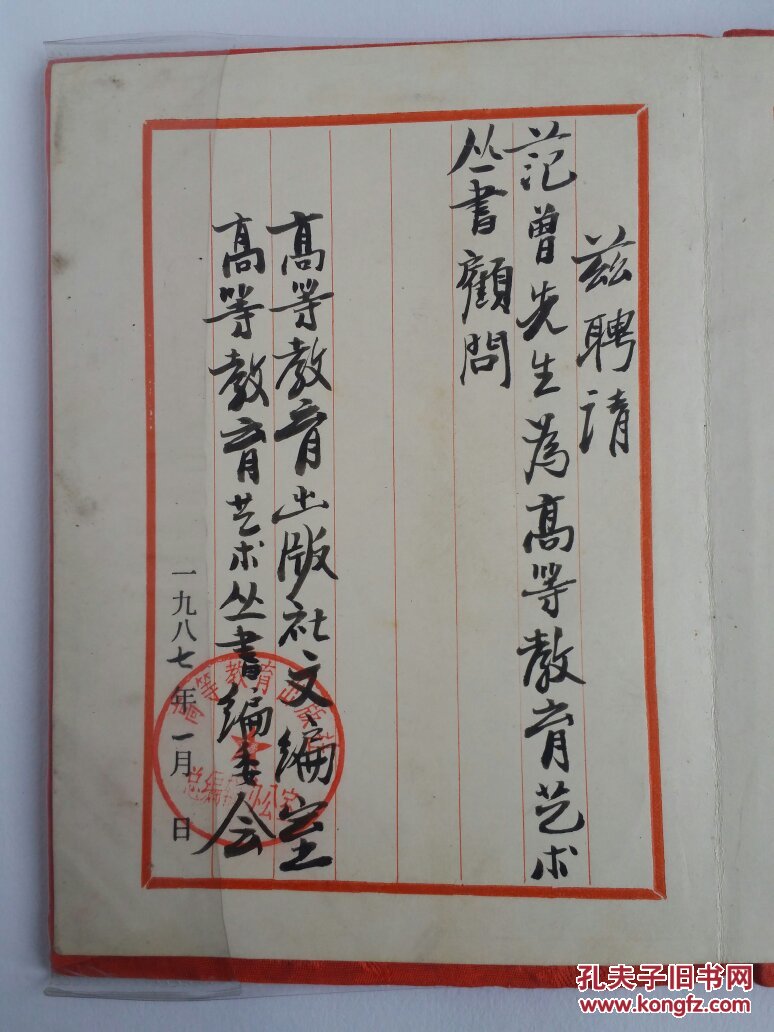 兹聘请
范曾先生为高等教育艺术
丛書顧問
高等教育出版社文编室
高等教育艺术丛書编委会
一九八七年一月 日
高等教育出版社
总编辑办公室
孔夫子旧书网
www.kongfz.com